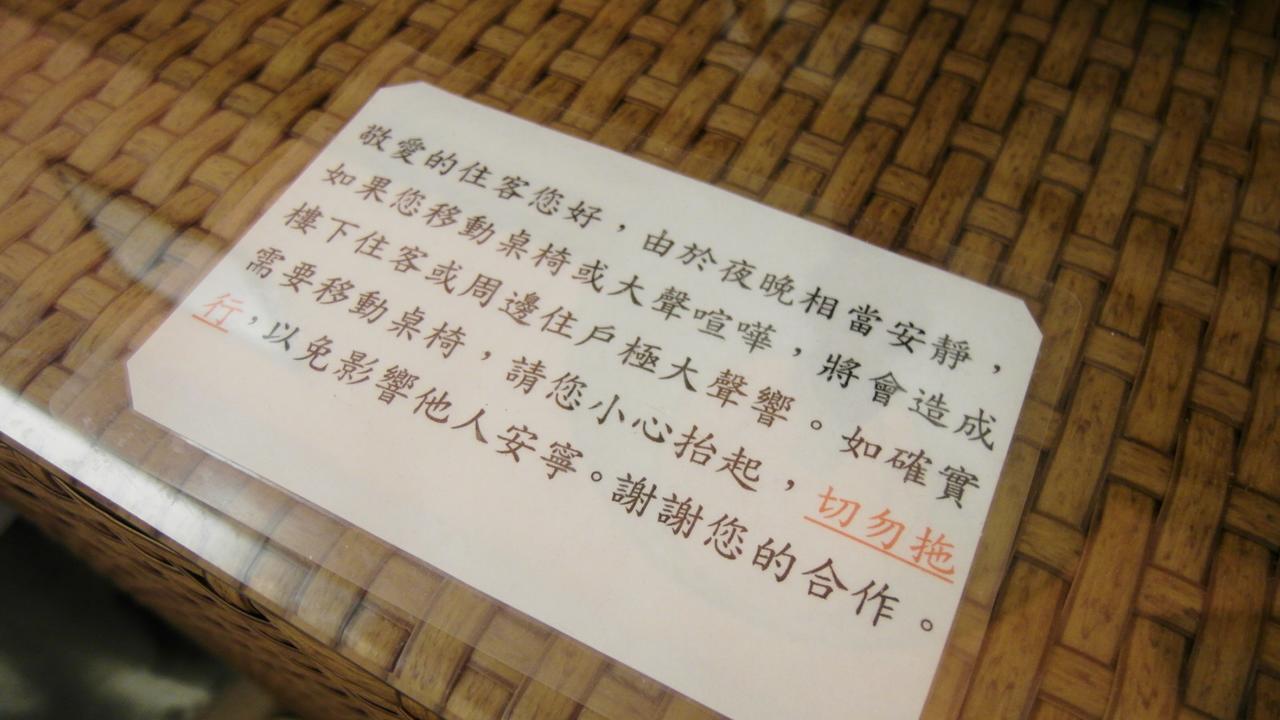 敬愛的住客您好，由於夜晚相當安靜，
如果您移動桌椅或大聲喧嘩，將會造成
樓下住客或周邊住戶極大聲響。如確實
需要移動桌椅，請您小心抬起，切勿拖
行，以免影響他人安寧。謝謝您的合作。